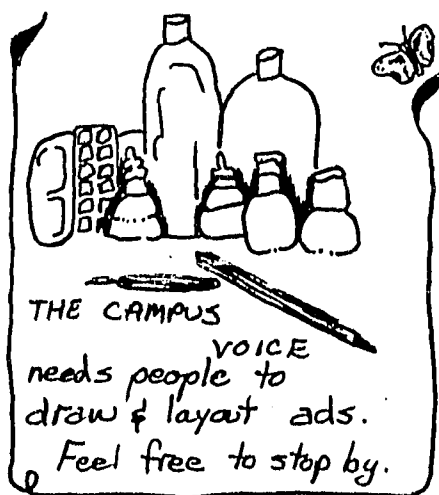 THE CAMPUS
VOICE
needs people to
draw & layout ads.
Feel free to stop by.